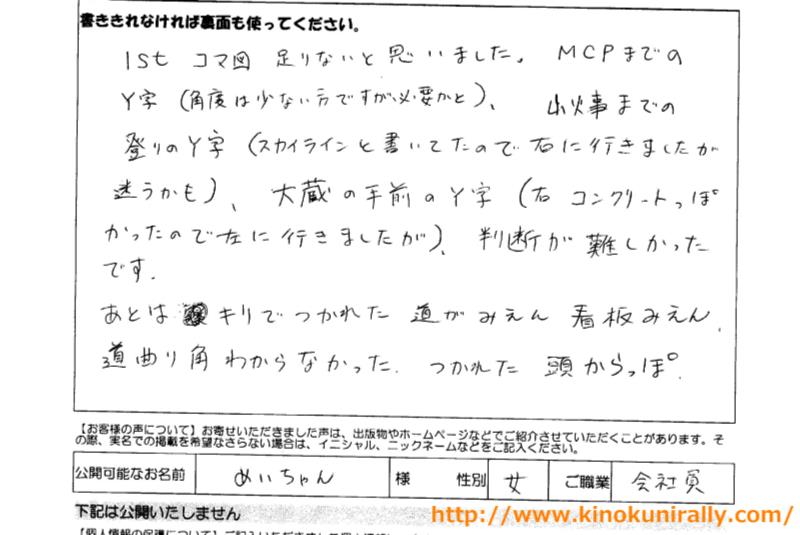 書ききれなければ裏面も使ってください。
1st コマ図 足りないと思いました。 MCPまでの
Y字(角度は少ない方ですが必要かと)、 火事までの
登りのY字(スカイラインと書いてたので右に行きましたが
迷うかも)、 大蔵の手前のY字(右 コンクリートっぽ
かったので左に行きましたが)、 判断が難しかった
です.
あとは キリでつかれた 道がみえん 看板みえん.
道曲り角わからなかった. つかれた 頭からっぽ.
【お客様の声について】お寄せいただきました声は、出版物やホームページなどでご紹介させていただくことがあります。そ
の際、実名での掲載を希望なさらない場合は、イニシャル、ニックネームなどをご記入ください。
公開可能なお名前 めいちゃん 様 性別 女 ご職業 会社員
下記は公開いたしません
http://www.kinokunirally.com/